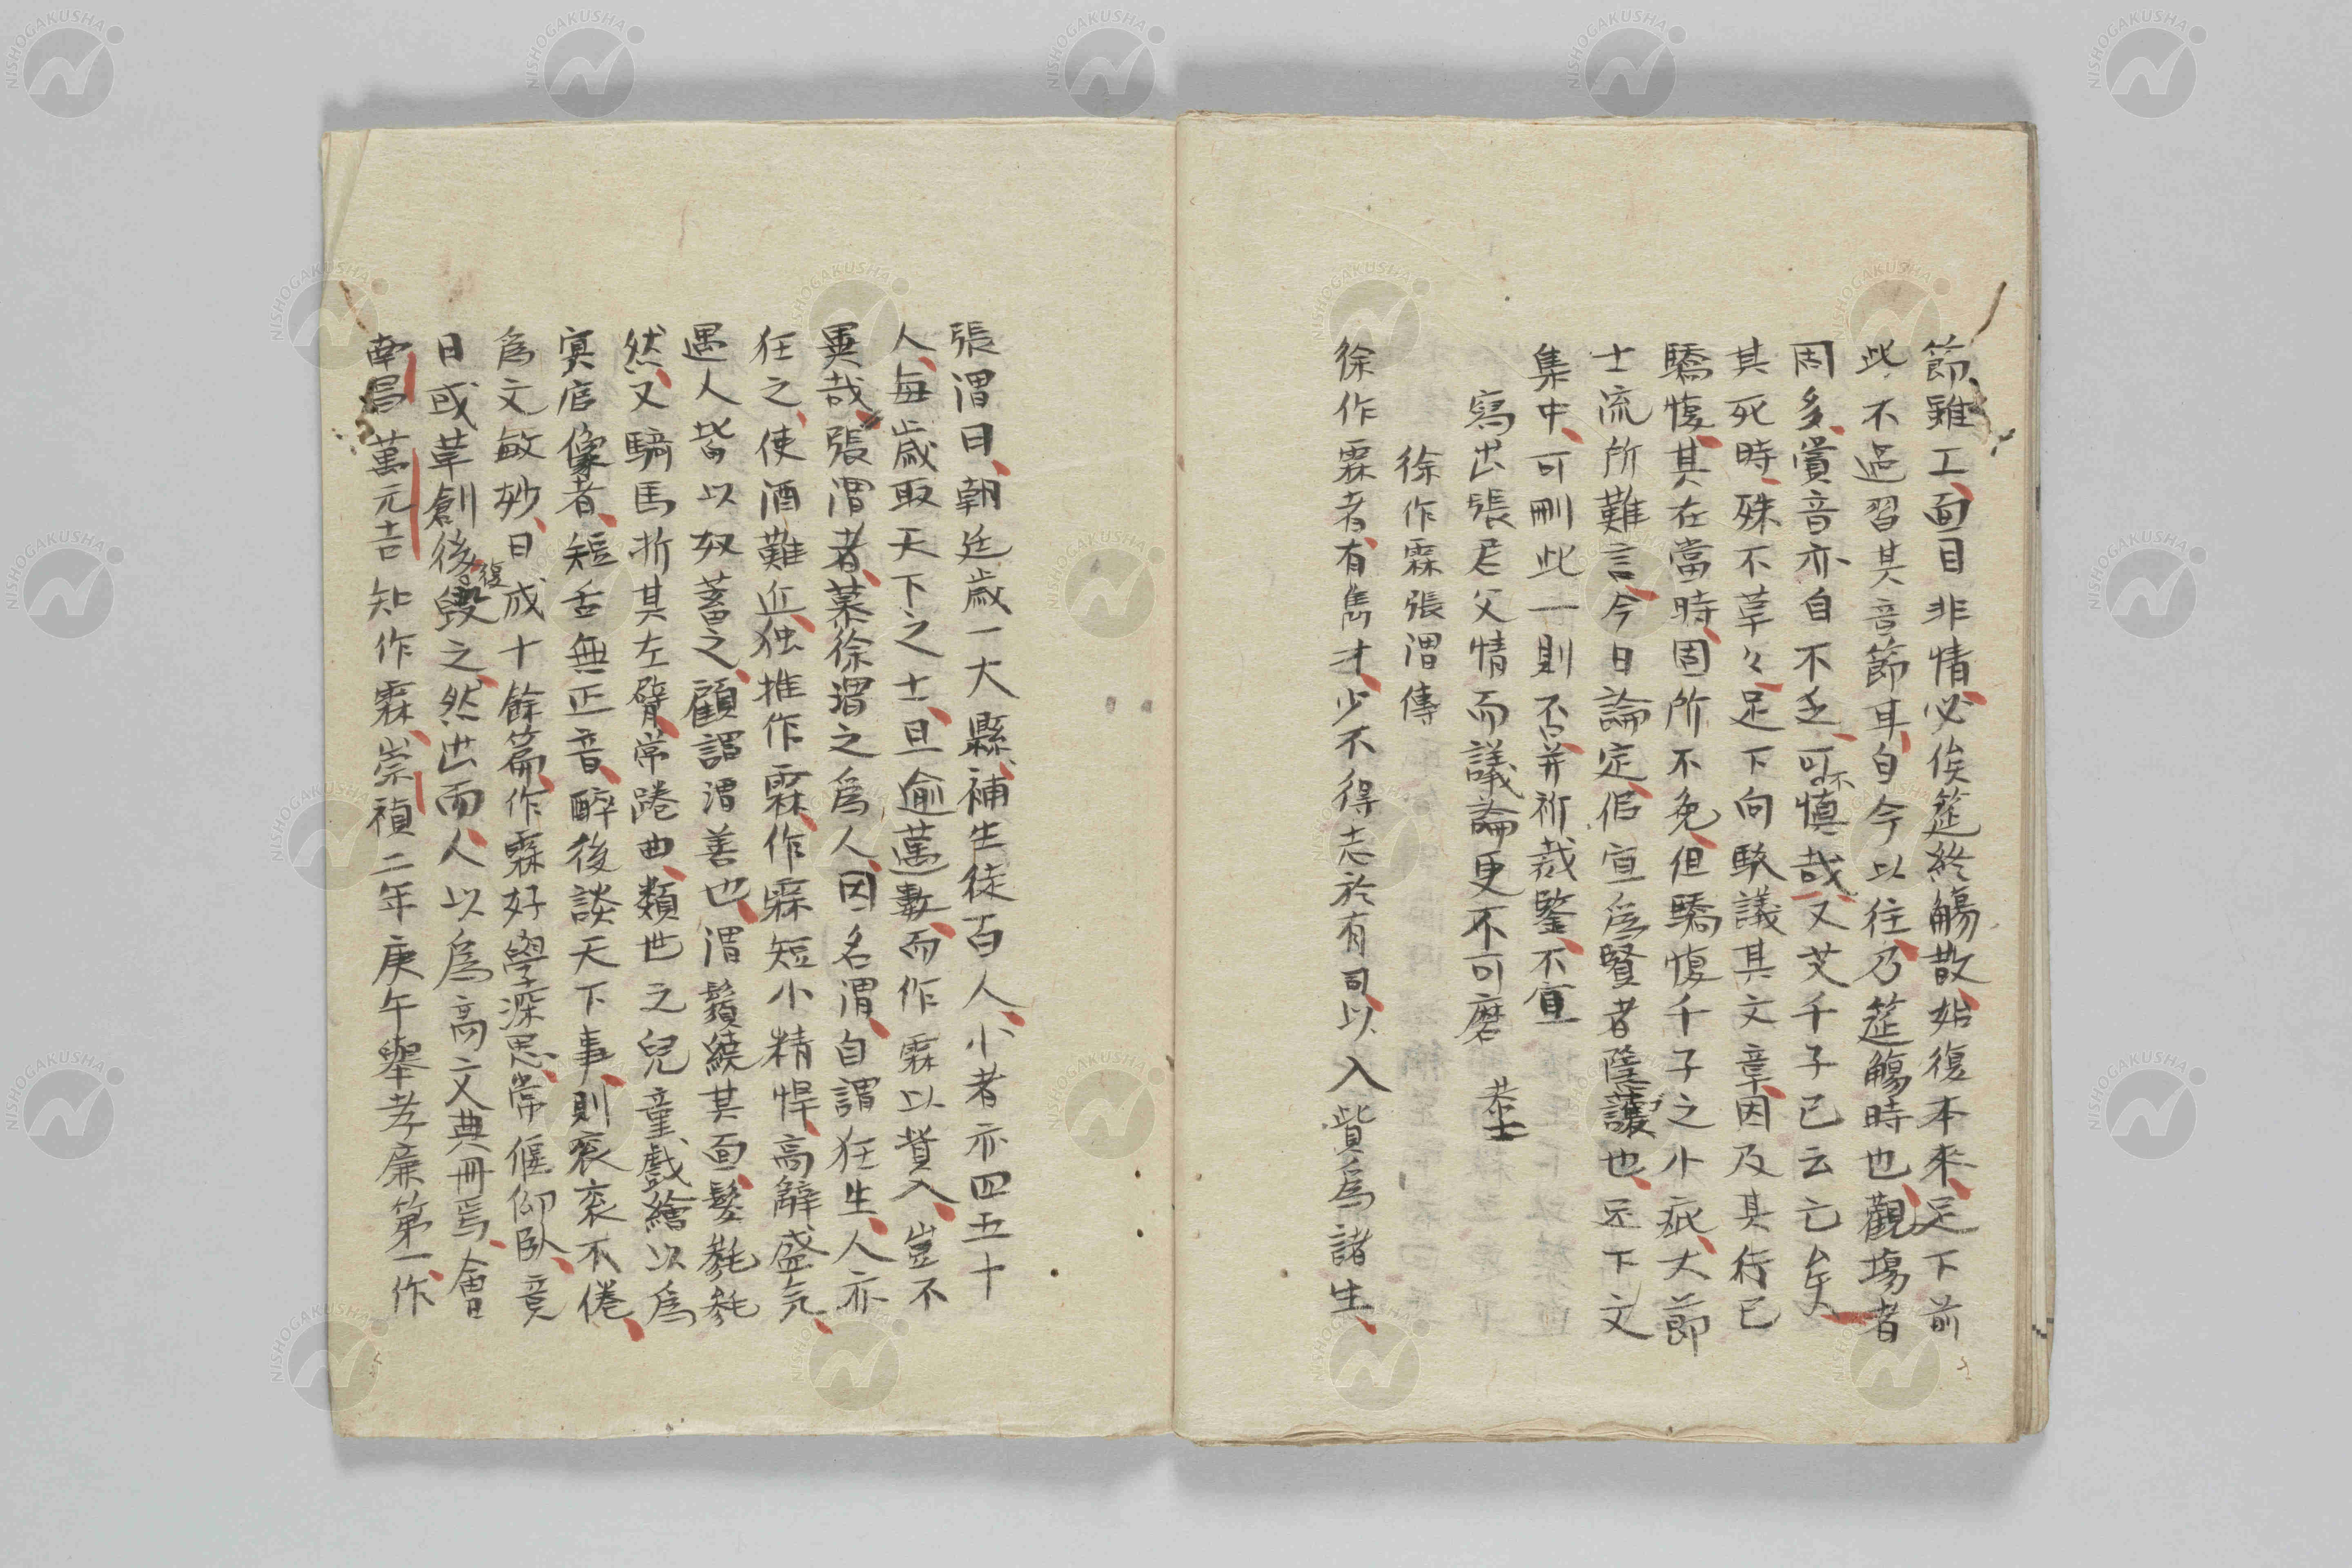 節雖工、面目非情、必俟筵終觴散、始復本來、足下前
此不過習其音節耳、自今以往、乃筵觴時也、觀場者
固多、賞音亦自不乏、可不慎哉、又艾千子已云亡矣、
其死時、殊不草々、足下向駁議其文章、因及其行己
驕愎、其在當時、固所不免、但驕愎千子之小疵、大節
士流所難言、今日論定、侣宜爲賢者隱護也、足下文
集中、可刪此一則否、并祈裁鑒、不宣
寫出張君父情而議論更不可磨 恭士
徐作霖張渭傳
徐作霖者、有雋才、少不得志於有司、以入貲爲諸生、
張渭曰、朝廷歲一大縣、補生徒百人、小者亦四五十
人、每歲取天下之士、且逾萬數、而作霖以貲入、豈不
異哉、張渭者、慕徐渭之爲人、因名渭、自謂狂生、人亦
狂之、使酒難近、独推作霖、作霖短小精悍、高辭盛氣、
遇人皆以奴蓄之、顧謂渭善也、渭鬚繞其面、髮毿毿
然、又騎馬折其左臂、常踡曲、類世之兒童戲繪以爲
冥官像者、短舌無正音、醉後談天下事、則袞袞不倦、
爲文敏妙、日成十餘篇、作霖好學深思、常偃仰臥、竟
日或草創後復毀之、然出而人以爲高文典冊焉、會
南昌萬元吉知作霖、崇禎二年庚午舉孝廉第一、作
NISHOGAKUSHA